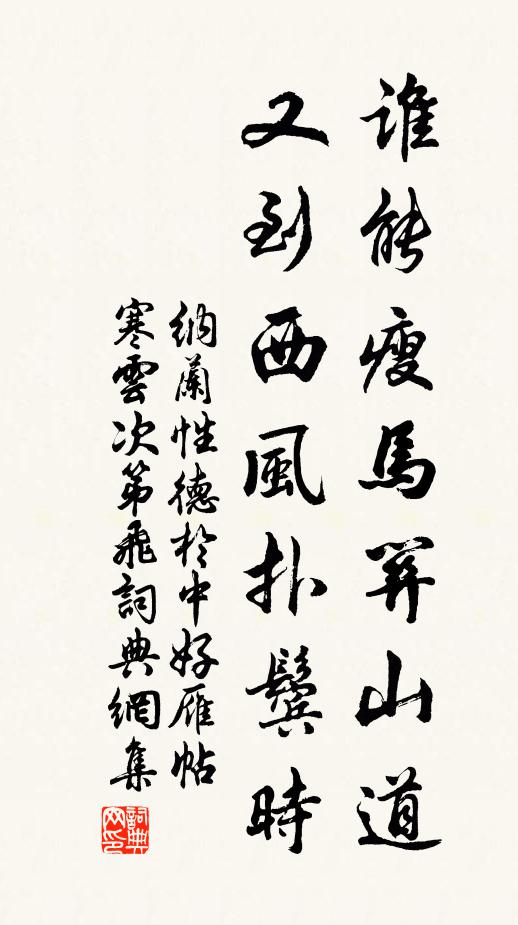 誰能瘦馬關山道
又到西風扑鬢時
納蘭性德於中好雁帖
寒雲次第飛詞典網集
詞典网印